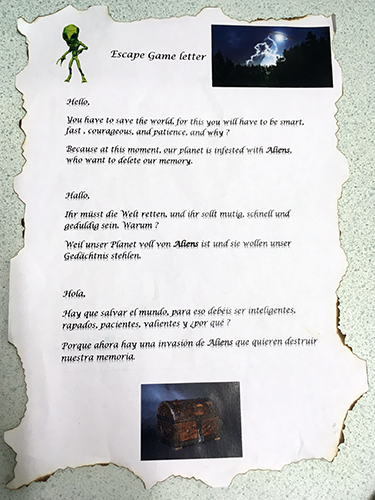 Escape Game letter
Hello,
You have to save the world, for this you will have to be smart,
fast , courageous, and patience, and why ?
Because at this moment, our planet is infested with Aliens,
who want to delete our memory.
Hallo,
Ihr müsst die Welt retten, und ihr sollt mutig, schnell und
geduldig sein. Warum ?
Weil unser Planet voll von Aliens ist und sie wollen unser
Gedächtnis stehlen.
Hola,
Hay que salvar el mundo, para eso debéis ser inteligentes,
rapados, pacientes, valientes y ¿por qué ?
Porque ahora hay una invasión de Aliens que quieren destruir
nuestra memoria.